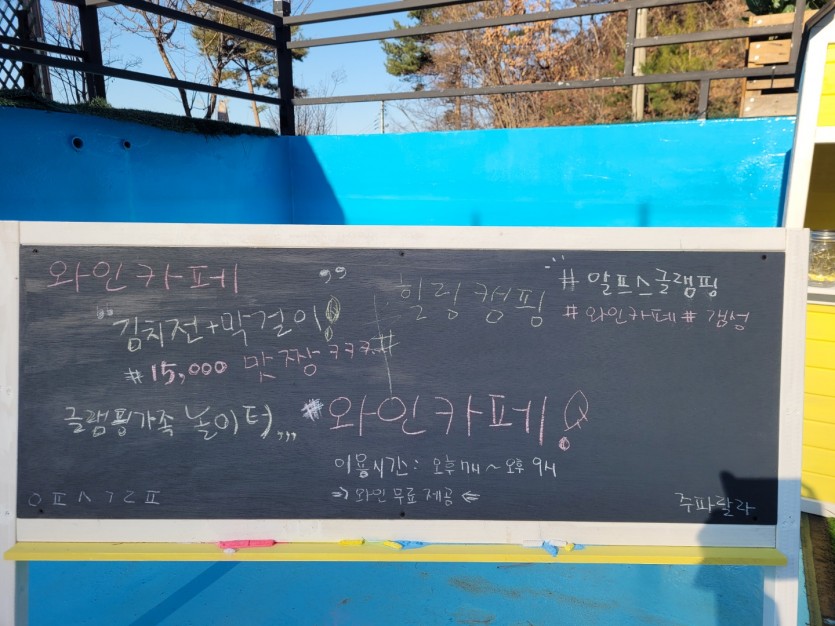 와인카페 ,,
"김치전+막걸이!
#15,000 맛짱 ㅋㅋㅋ
글램핑가족 놀이터,,,
힐링캠핑
#알프스글램핑
#와인카페#갬성
#와인카페!
이용시간: 오후7시~오후9시
=> 와인무료제공 <=
ㅇㅍㅅㄱㄹㅍ
주파랄라